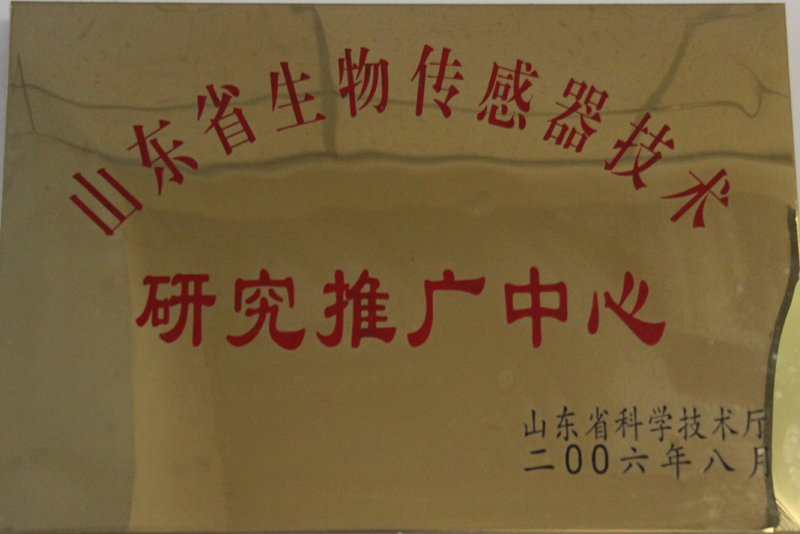 山东省生物传感器技术
研究推广中心
山东省科学技术厅
二00六年八月